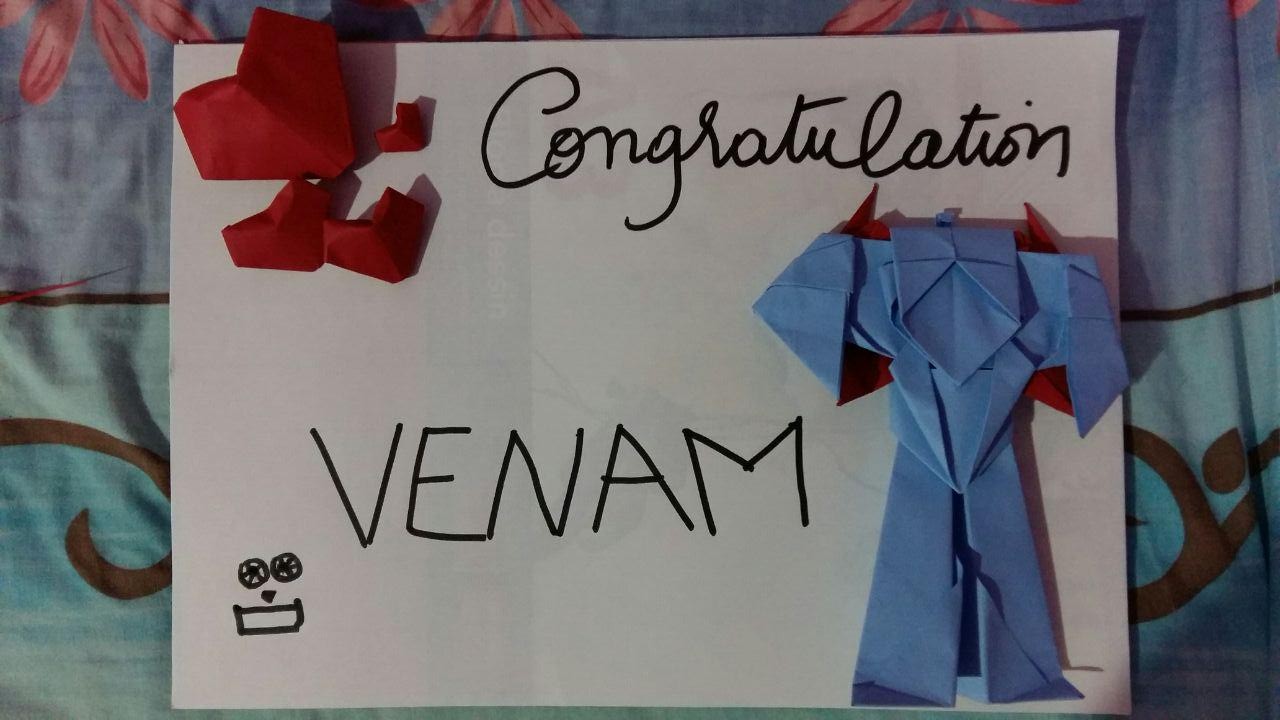 Congratulation
VENAM